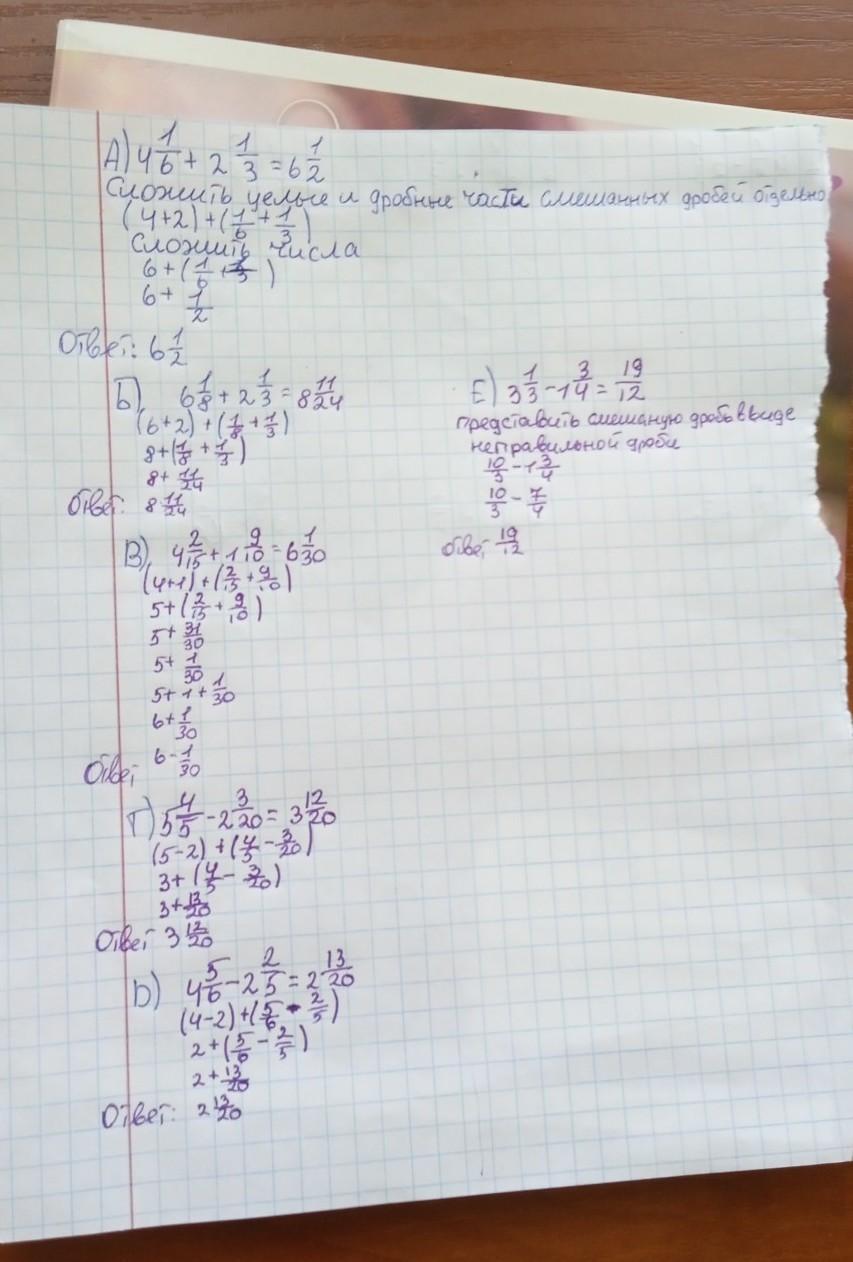 А) 4 1/6 + 2 1/3 = 6 1/2
Сложить целые и дробные части смешанных дробей отдельно
(4+2) + (1/6 + 1/3)
Сложить числа
6 + (1/6 + 1/3)
6 + 1/2
Ответ: 6 1/2
Б) 6 1/8 + 2 1/3 = 8 11/24
(6+2) + (1/8 + 1/3)
8 + (1/8 + 1/3)
8 + 11/24
Ответ: 8 11/24
В) 4 2/15 + 1 9/10 = 6 1/30
(4+1) + (2/15 + 9/10)
5 + (2/15 + 9/10)
5 + 31/30
5 + 1/30
5 + 1 + 1/30
6 + 1/30
Ответ 6 - 1/30
Г) 5 4/5 - 2 3/20 = 3 12/20
(5-2) + (4/5 - 3/20)
3 + (4/5 - 3/20)
3 + 13/20
Ответ 3 12/20
D) 4 5/6 - 2 2/5 = 2 13/20
(4-2) + (5/6 - 2/5)
2 + (5/6 - 2/5)
2 + 13/20
Ответ: 2 13/20
Е) 3 1/3 - 1 3/4 = 19/12
представить смешаную дробь в виде
неправильной дроби
10/3 - 1 3/4
10/3 - 7/4
ответ 19/12